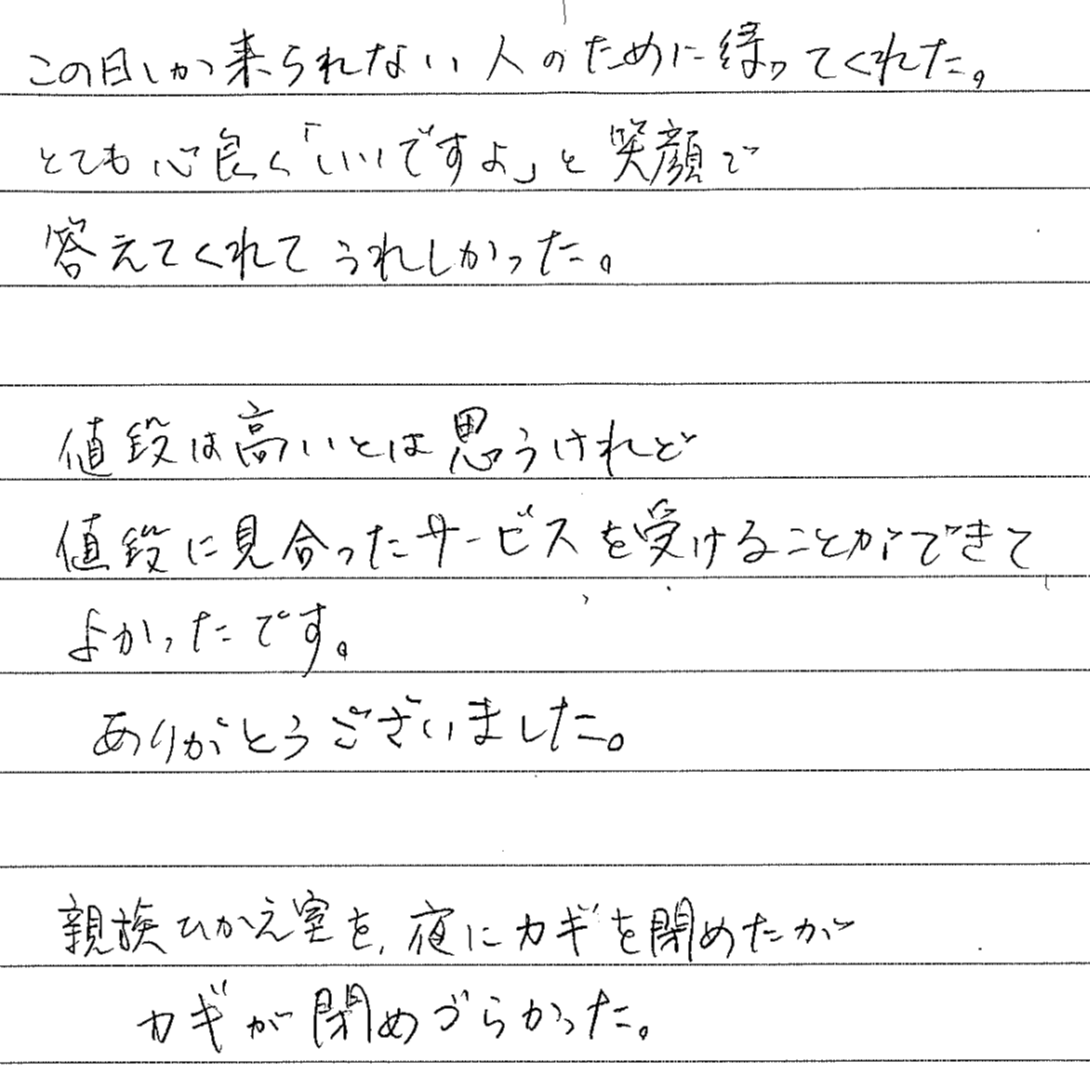 この日しか来られない人のために待ってくれた。
とても心良く「いいですよ」と笑顔で
答えてくれてうれしかった。
値段は高いとは思うけれど
値段に見合ったサービスを受けることができて
よかったです。
ありがとうございました。
親族ひかえ室を、夜にカギを閉めたが
カギが閉めづらかった。